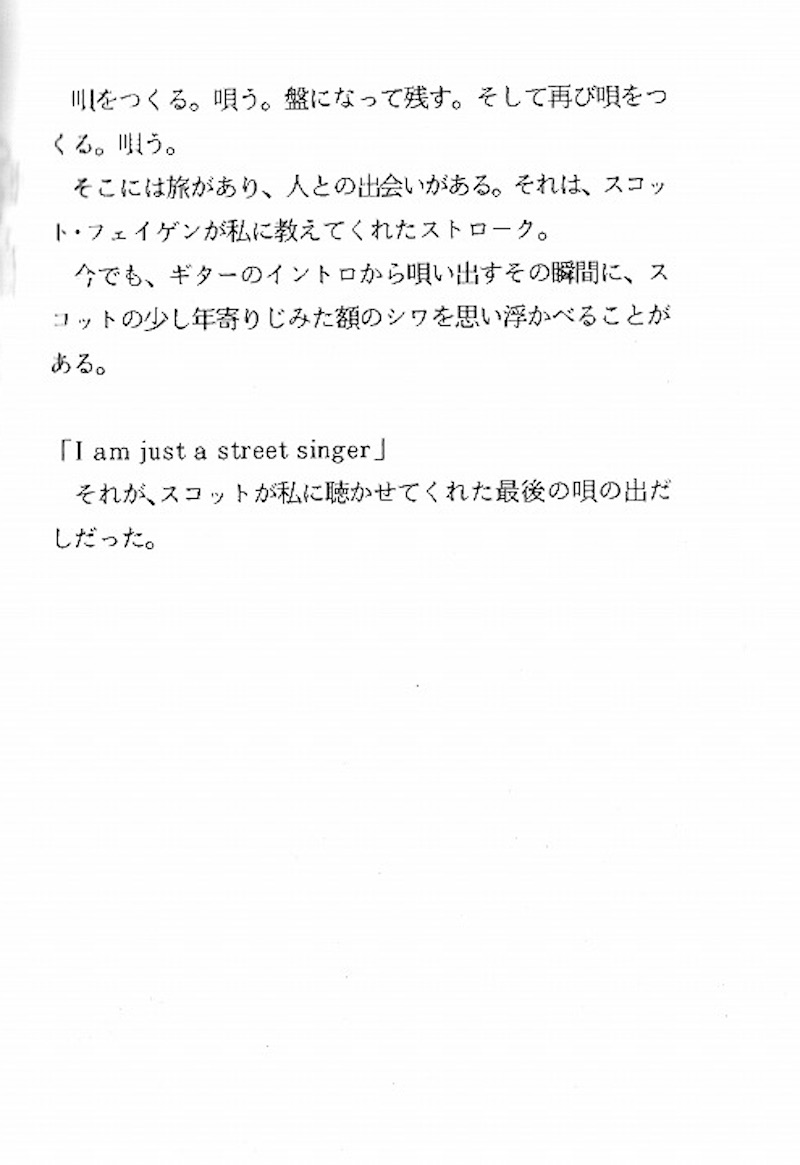 唄をつくる。唄う。盤になって残す。そして再び唄をつ
くる。唄う。
そこには旅があり、人との出会いがある。それは、スコッ
ト・フェイゲンが私に教えてくれたストローク。
今でも、ギターのイントロから唄い出すその瞬間に、ス
コットの少し年寄りじみた額のシワを思い浮かべることが
ある。
「I am just a street singer」
それが、スコットが私に聴かせてくれた最後の唄の出だ
しだった。